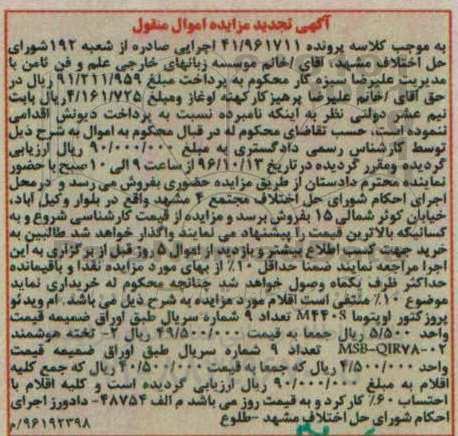 آگهی تجدید مزایده اموال منقول
به موجب کلاسه پرونده ۴۱/۹۶۱۷۱۱ اجرایی صادره از شعبه ۱۹۲شورای
حل اختلاف مشهد، آقای /خانم موسسه زبانهای خارجی علم و فن ثامن با
مدیریت علیرضا سبزه کار محکوم به پرداخت مبلغ ۹۱/۲۱۱/۹۵۹ ریال در
حق آقای /خانم علیرضا پرهیز کار کهنه اوغاز ومبلغ ۴/۱۶۱/۷۲۵ریال بابت
نیم عشر دولتی نظر به اینکه نامبرده نسبت به پرداخت دیونش اقدامی
ننموده است، حسب تقاضای محکوم له در قبال محکوم به اموال به شرح ذیل
توسط کارشناس رسمی دادگستری به مبلغ ۹۰/۰۰۰/۰۰۰ ریال ارزیابی
گردیده ومقرر گردیده درتاریخ ۹۶/۱۰/۱۳ از ساعت ۹ الی ۱۰صبح با حضور
نماینده محترم دادستان از طریق مزایده حضوری بفروش می رسد و درمحل
اجرای احکام شورای حل اختلاف مجتمع ۴ مشهد واقع در بلوار وکیل آباد،
خیابان کوثر شمالی ۱۵ بفروش برسد و مزایده از قیمت کارشناسی شروع و به
کسانیکه بالاترین قیمت را پیشنهاد می نمایند واگذار خواهد شد طالبین به
خرید جهت کسب اطلاع بیشتر و بازدید از اموال ۵ روز قبل از برگزاری به این
اجرا مراجعه نمایند ضمنا حداقل ۱۰٪ از بهای مورد مزایده نقدا و باقیمانده
حداکثر ظرف یکماه وصول خواهد شد چنانچه محکوم له خریداری نماید
موضوع ۱۰٪ منتفی است اقلام مورد مزایده به شرح ذیل می باشد ۱م ویدئو
پروز کتور اوپتوما M۴۴۰S تعداد ۹ شماره سریال طبق اوراق ضمیمه قیمت
واحد ۵/۵۰۰ ریال جمعا به قیمت ۴۹/۵۰۰/۰۰۰ ریال ۲- تخته هوشمند
MSB-QIR۷۸-۰۲ تعداد ۹ شماره سریال طبق اوراق ضمیمه قیمت
واحد ۴/۵۰۰/۰۰۰ ریال که جمعا به قیمت ۴۰/۵۰۰/۰۰۰ ریال که جمع کلیه
اقلام به مبلغ ۹۰/۰۰۰/۰۰۰ ریال ارزیابی گردیده است و کلیه اقلام با
احتساب ۶۰٪ کار کرد و به قیمت روز می باشد م الف ۴۸۷۵۴- دادورز اجرای
احکام شورای حل اختلاف مشهد -طلوع
۹۶۱۹۲۳۹۸/م